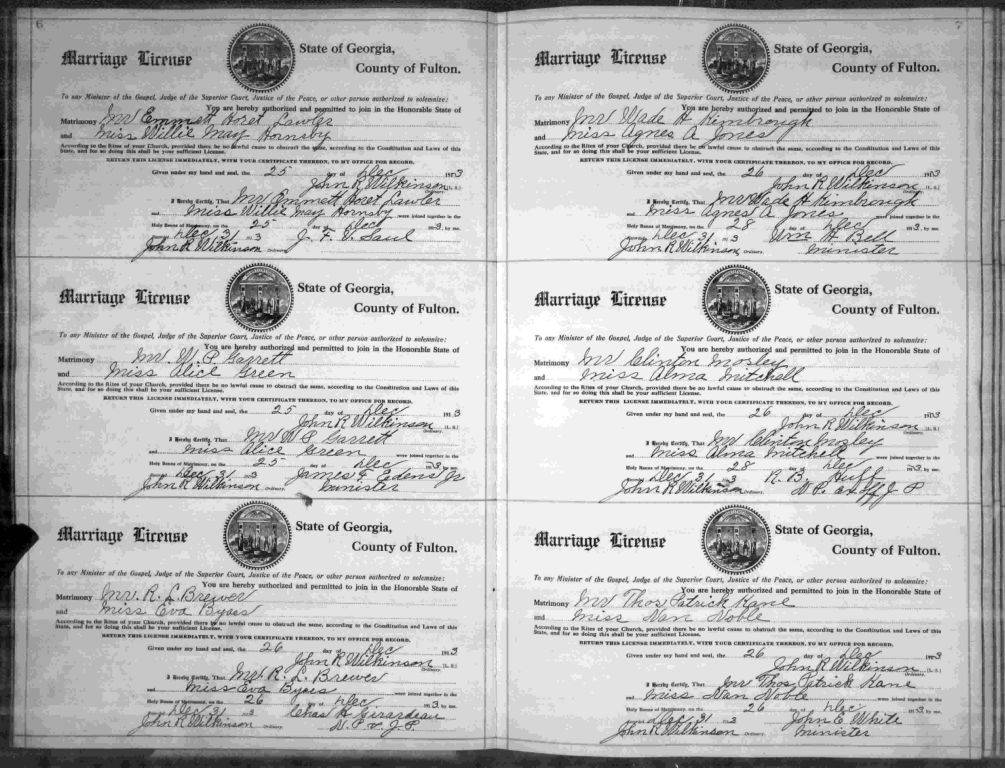 6
Marriage License
State of Georgia,
County of Fulton.
To any Minister of the Gospel, Judge of the Superior Court, Justice of the Peace, or other person authorized to solemnize:
You are hereby authorized and permitted to join in the Honorable State of
Matrimony Mr Emmett Horet Lawler
and Miss Willie May Hornsby
According to the Rites of your Church, provided there be no lawful cause to obstruct the same, according to the Constitution and Laws of this
State, and for so doing this shall be your sufficient License.
RETURN THIS LICENSE IMMEDIATELY, WITH YOUR CERTIFICATE THEREON, TO MY OFFICE FOR RECORD.
Given under my hand and seal, the 25 day of Dec 1913
John R Wilkinson (L. S.)
Ordinary.
I Hereby Certify, That Mr Emmett Horet Lawler
and Miss Willie May Hornsby were joined together in the
Holy Bonds of Matrimony, on the 25 day of Dec 1913, by me.
Dec 31 1913 J. F. V. Saul
John R Wilkinson Ordinary.
Marriage License
State of Georgia,
County of Fulton.
To any Minister of the Gospel, Judge of the Superior Court, Justice of the Peace, or other person authorized to solemnize:
You are hereby authorized and permitted to join in the Honorable State of
Matrimony Mr. W. P. Garrett
and Miss Alice Green
According to the Rites of your Church, provided there be no lawful cause to obstruct the same, according to the Constitution and Laws of this
State, and for so doing this shall be your sufficient License.
RETURN THIS LICENSE IMMEDIATELY, WITH YOUR CERTIFICATE THEREON, TO MY OFFICE FOR RECORD.
Given under my hand and seal, the 25 day of Dec 1913
John R Wilkinson (L. S.)
Ordinary.
I Hereby Certify, That Mr W P Garrett
and Miss Alice Green were joined together in the
Holy Bonds of Matrimony, on the 25 day of Dec 1913, by me.
Dec 31 1913 James F Edens Jr
John R Wilkinson Ordinary. Minister
Marriage License
State of Georgia,
County of Fulton.
To any Minister of the Gospel, Judge of the Superior Court, Justice of the Peace, or other person authorized to solemnize:
You are hereby authorized and permitted to join in the Honorable State of
Matrimony Mr. R. L Brewer
and Miss Eva Byess
According to the Rites of your Church, provided there be no lawful cause to obstruct the same, according to the Constitution and Laws of this
State, and for so doing this shall be your sufficient License.
RETURN THIS LICENSE IMMEDIATELY, WITH YOUR CERTIFICATE THEREON, TO MY OFFICE FOR RECORD.
Given under my hand and seal, the 26 day of Dec 1913
John R Wilkinson (L. S.)
Ordinary.
I Hereby Certify, That Mr. R. L. Brewer
and Miss Eva Byess were joined together in the
Holy Bonds of Matrimony, on the 26 day of Dec 1913, by me.
Dec 31 1913 Chas H Girardeau
John R Wilkinson Ordinary. N. P. & J. P.
7
Marriage License
State of Georgia,
County of Fulton.
To any Minister of the Gospel, Judge of the Superior Court, Justice of the Peace, or other person authorized to solemnize:
You are hereby authorized and permitted to join in the Honorable State of
Matrimony Mr Wade H Kimbrough
and Miss Agnes A Jones
According to the Rites of your Church, provided there be no lawful cause to obstruct the same, according to the Constitution and Laws of this
State, and for so doing this shall be your sufficient License.
RETURN THIS LICENSE IMMEDIATELY, WITH YOUR CERTIFICATE THEREON, TO MY OFFICE FOR RECORD.
Given under my hand and seal, the 26 day of Dec 1913
John R Wilkinson (L. S.)
Ordinary.
I Hereby Certify, That Mr Wade H Kimbrough
and Miss Agnes A Jones were joined together in the
Holy Bonds of Matrimony, on the 28 day of Dec 1913, by me.
Dec 31 1913 Wm H Bell
John R Wilkinson Ordinary. Minister
Marriage License
State of Georgia,
County of Fulton.
To any Minister of the Gospel, Judge of the Superior Court, Justice of the Peace, or other person authorized to solemnize:
You are hereby authorized and permitted to join in the Honorable State of
Matrimony Mr Clinton Mosley
and Miss Alma Mitchell
According to the Rites of your Church, provided there be no lawful cause to obstruct the same, according to the Constitution and Laws of this
State, and for so doing this shall be your sufficient License.
RETURN THIS LICENSE IMMEDIATELY, WITH YOUR CERTIFICATE THEREON, TO MY OFFICE FOR RECORD.
Given under my hand and seal, the 26 day of Dec 1913
John R Wilkinson (L. S.)
Ordinary.
I Hereby Certify, That Mr Clinton Mosley
and Miss Alma Mitchell were joined together in the
Holy Bonds of Matrimony, on the 28 day of Dec 1913, by me.
Dec 31 1913 R. B. Huff
John R Wilkinson Ordinary. J P
Marriage License
State of Georgia,
County of Fulton.
To any Minister of the Gospel, Judge of the Superior Court, Justice of the Peace, or other person authorized to solemnize:
You are hereby authorized and permitted to join in the Honorable State of
Matrimony Mr Thos Patrick Kane
and Miss Nan Noble
According to the Rites of your Church, provided there be no lawful cause to obstruct the same, according to the Constitution and Laws of this
State, and for so doing this shall be your sufficient License.
RETURN THIS LICENSE IMMEDIATELY, WITH YOUR CERTIFICATE THEREON, TO MY OFFICE FOR RECORD.
Given under my hand and seal, the 26 day of Dec 1913
John R Wilkinson (L. S.)
Ordinary.
I Hereby Certify, That Mr Thos Patrick Kane
and Miss Nan Noble were joined together in the
Holy Bonds of Matrimony, on the 26 day of Dec 1913, by me.
Dec 31 1913 John E White
John R Wilkinson Ordinary. Minister